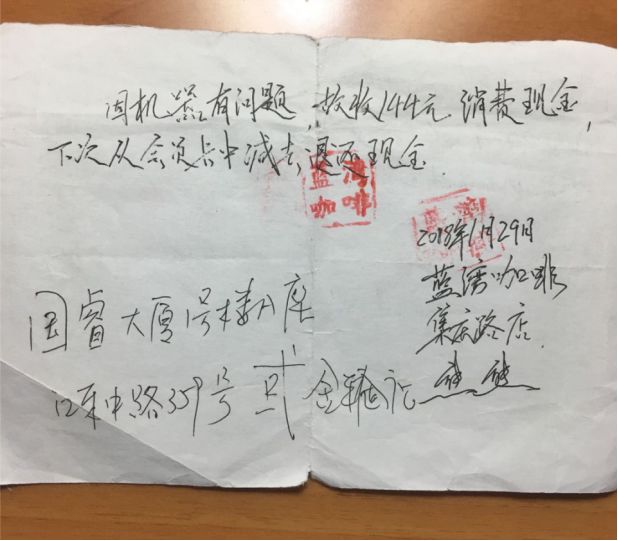 因机器有问题，故收144元消费现金，
下次从会员卡中减去退还现金
蓝湾
咖啡
2018年1月29日
蓝湾咖啡
集庆路店
国睿大厦号楼A座
江东中路359号